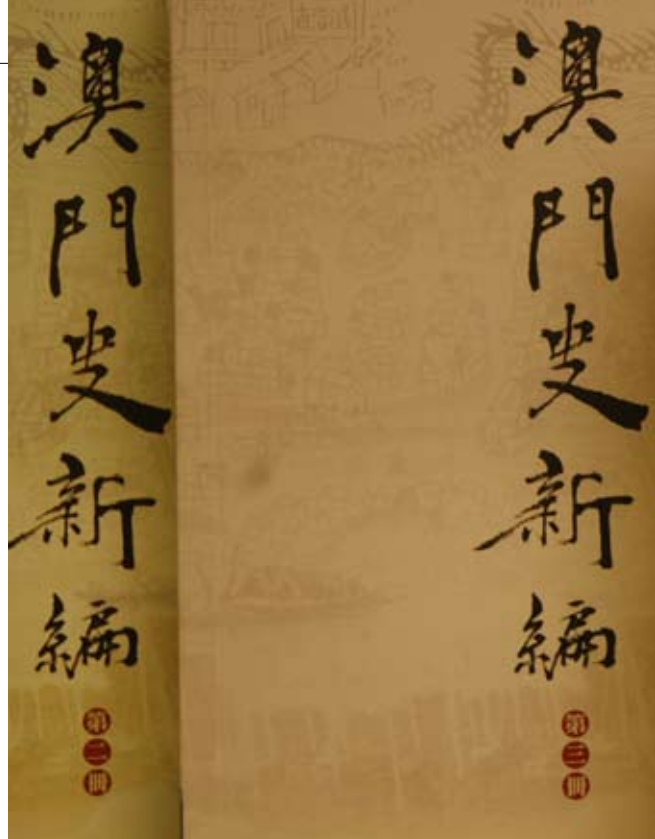 澳門史新編
第二冊
澳門史新編
第三冊